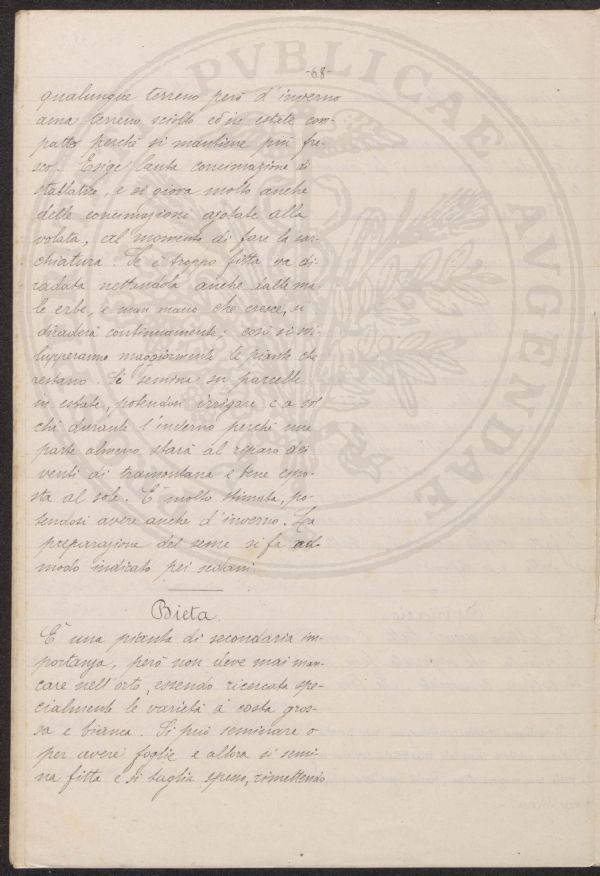 -68-
qualunque terreno però d'inverno
ama terreno sciolto ed in estate com-
patto perchè si mantiene più fre-
sco. Esige lauta concimazione di
stallatico, e si giova molto anche
delle concimazioni azotate alla
volata, al momento di fare la sar-
chiatura. Se è troppo fitta va di
radata nettandola anche dalle ma
le erbe, e man mano che cresce, si
diraderà continuamente; così si svi
lupperanno maggiormente le piante che
restano. Si semina su parcelle
in estate, potendosi irrigare e a sol
chi durante l'inverno perchè una
parte almeno starà al riparo dei
venti di tramontana e bene espo-
sta al sole. È molto stimata, po-
tendosi avere anche d'inverno. La
preparazione del seme si fa nel
modo indicato pei sedani.
Bieta.
È una pianta di secondaria im-
portanza, però non deve mai man-
care nell'orto, essendo ricercata spe-
cialmente le varietà a costa gros-
sa e bianca. Si può seminare o
per avere foglie e allora si semi
na fitta e si taglia spesso, rimettendo
PVBLICAE AVGENDAE